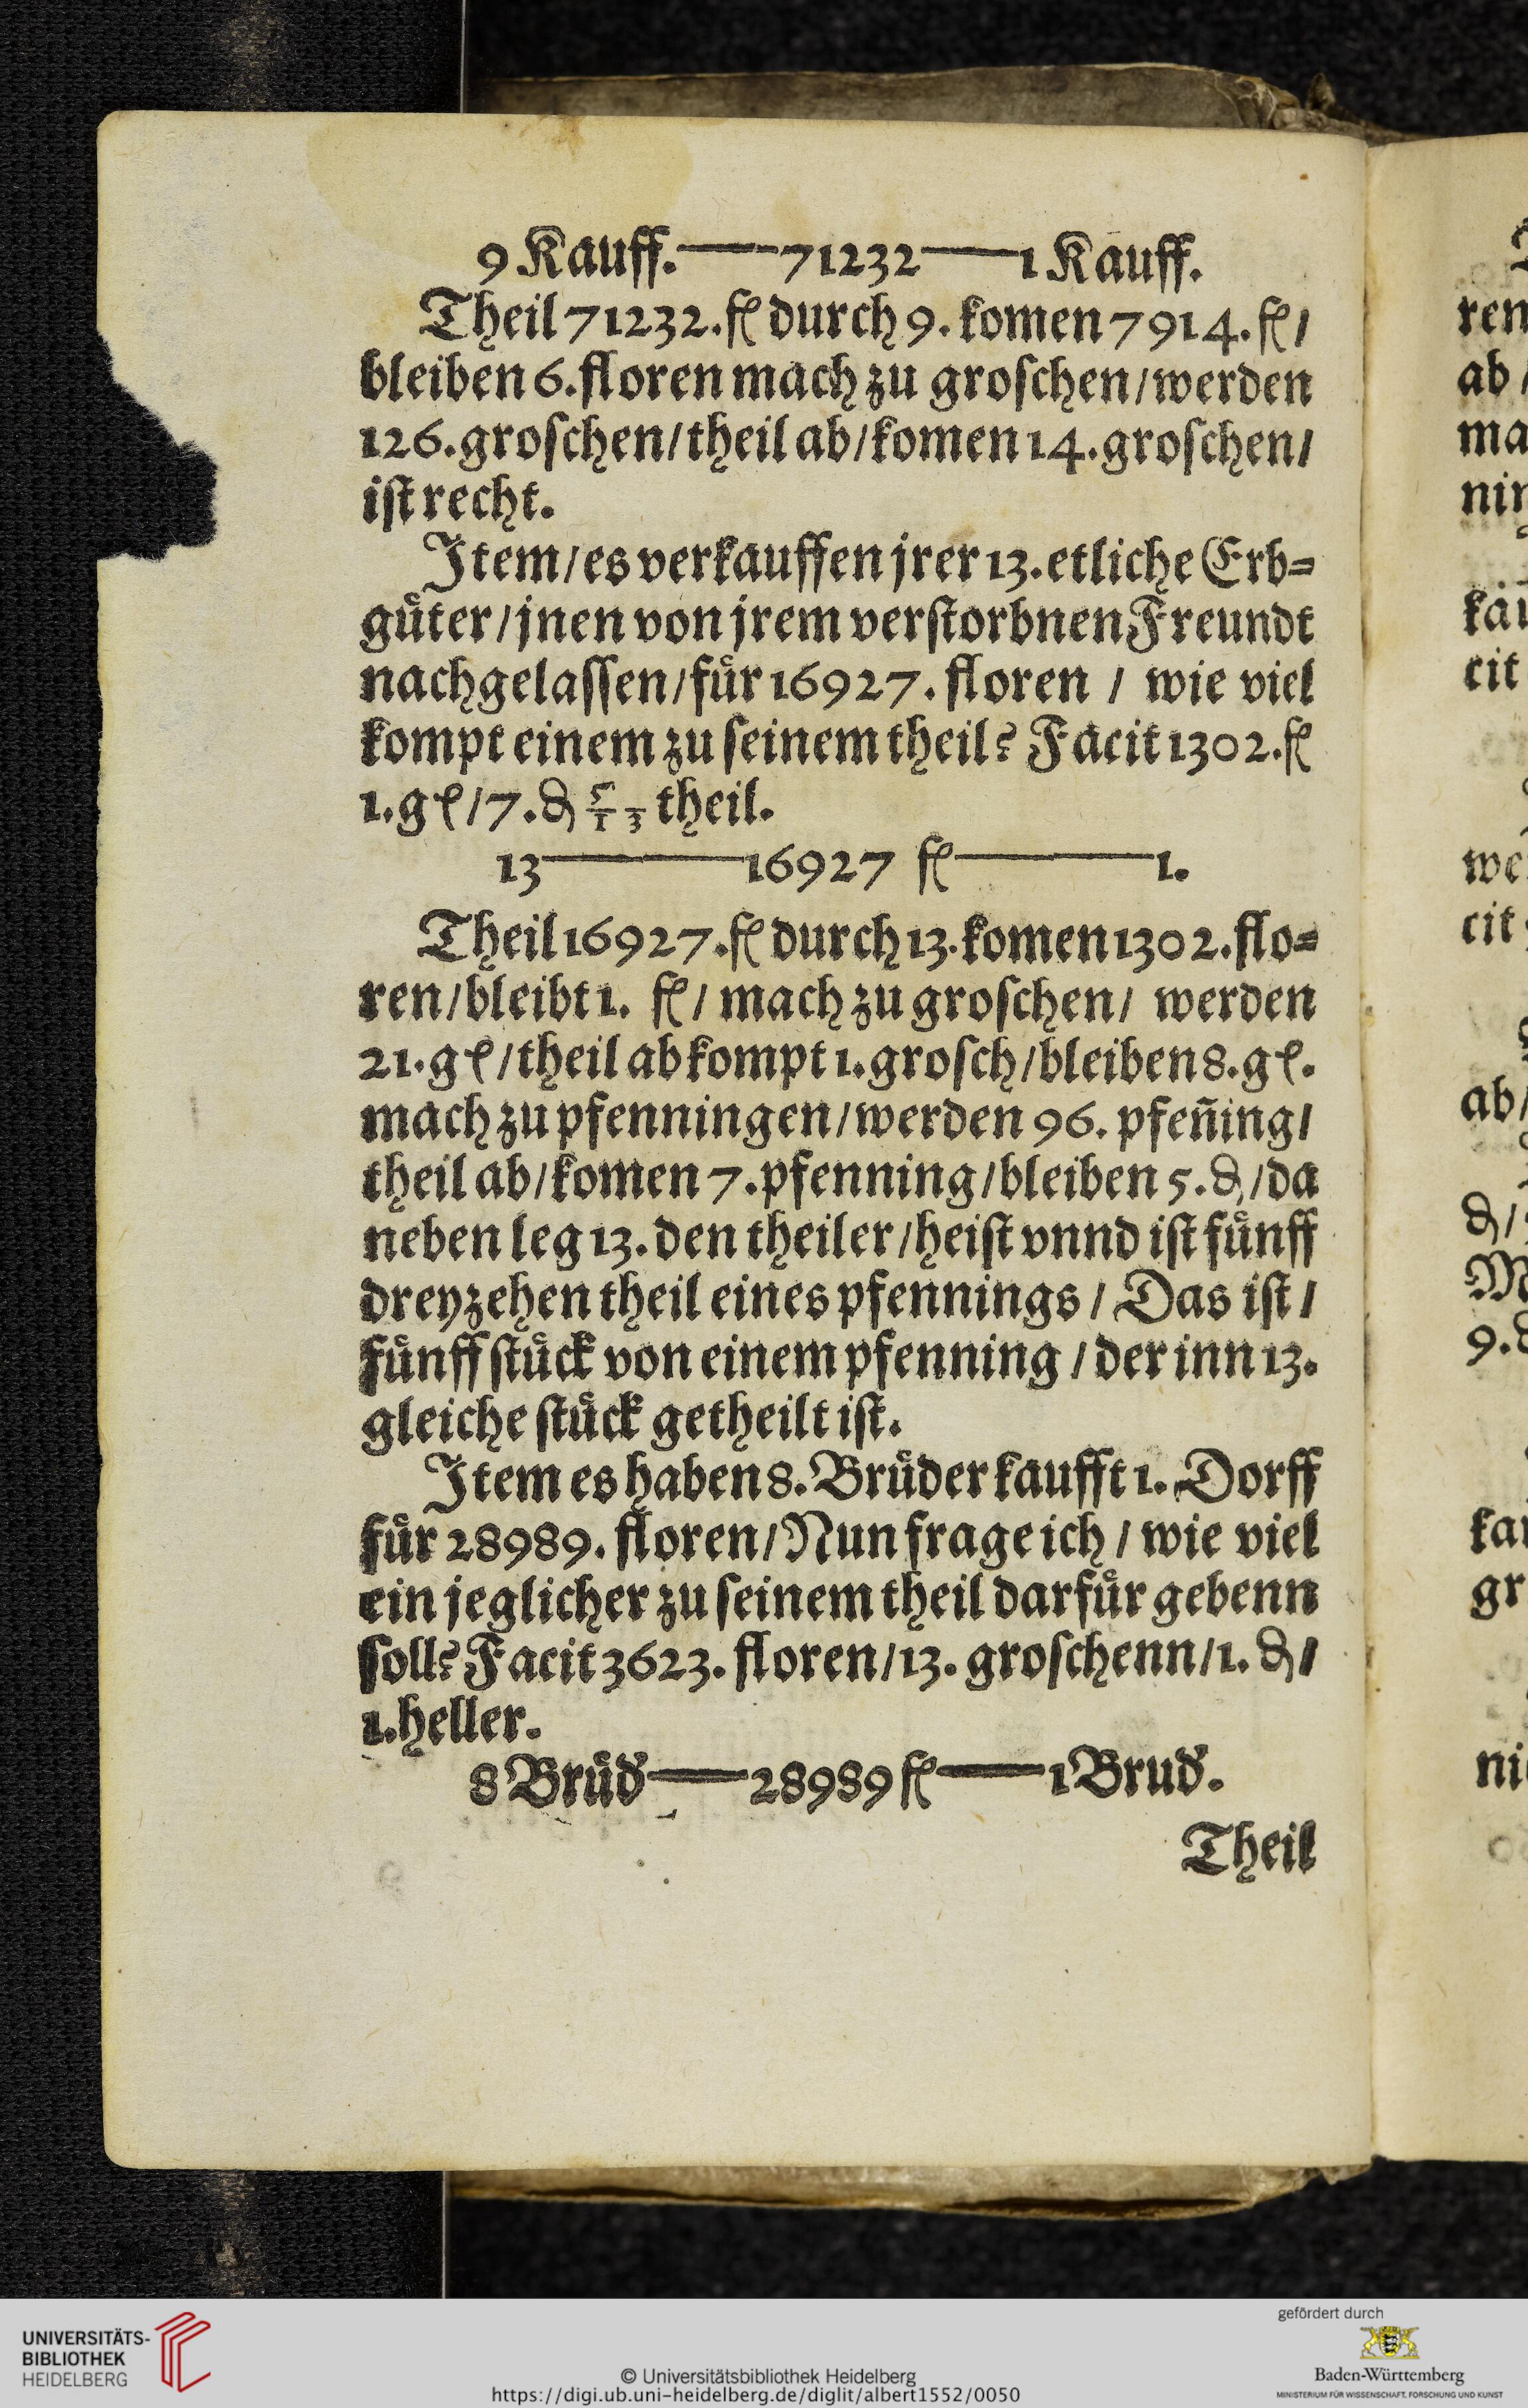 9 Kauff. — 71232 — 1 Kauff.
Theil 71232. fl durch 9. komen 7914. fl /
bleiben 6. floren mach zu groſchen / werden
126. groſchen / theil ab / komen 14. groſchen /
iſt recht.
Item / es verkauffen jrer 13. etliche Erb=
guͤter / jnen von jrem verſtorbnen Freundt
nachgelaſſen / fuͤr 16927. floren / wie viel
kompt einem zu ſeinem theil? Facit 1302. fl
1. gl / 7. ₰ 5/13 theil.
13 — 16927 fl — 1.
Theil 16927. fl durch 13. komen 1302. flo=
ren / bleibt 1. fl / mach zu groſchen / werden
21. gl / theil ab kompt 1. groſch / bleiben 8. gl.
mach zu pfenningen / werden 96. pfen̄ing /
theil ab / komen 7. pfenning / bleiben 5. ₰ / da
neben leg 13. den theiler / heiſt vnnd iſt fuͤnff
dreyzehen theil eines pfennings / Das iſt /
fuͤnff ſtuͤck von einem pfenning / der inn 13.
gleiche ſtuͤck getheilt iſt.
Item es haben 8. Bruͤder kaufft 1. Dorff
fuͤr 28989. floren / Nun frage ich / wie viel
ein jeglicher zu ſeinem theil darfuͤr gebenn
ſoll? Facit 3623. floren / 13. groſchenn / 1. ₰ /
1. heller.
8 Bruͤd' — 28989 fl — 1 Brud'.
Theil
ren
ab /
ma
cit
we
cit
ab /
₰ /
M
9.
gr
UNIVERSITÄTS-
BIBLIOTHEK
HEIDELBERG
© Universitätsbibliothek Heidelberg
https://digi.ub.uni-heidelberg.de/diglit/albert1552/0050
gefördert durch
Baden-Württemberg
MINISTERIUM FÜR WISSENSCHAFT, FORSCHUNG UND KUNST